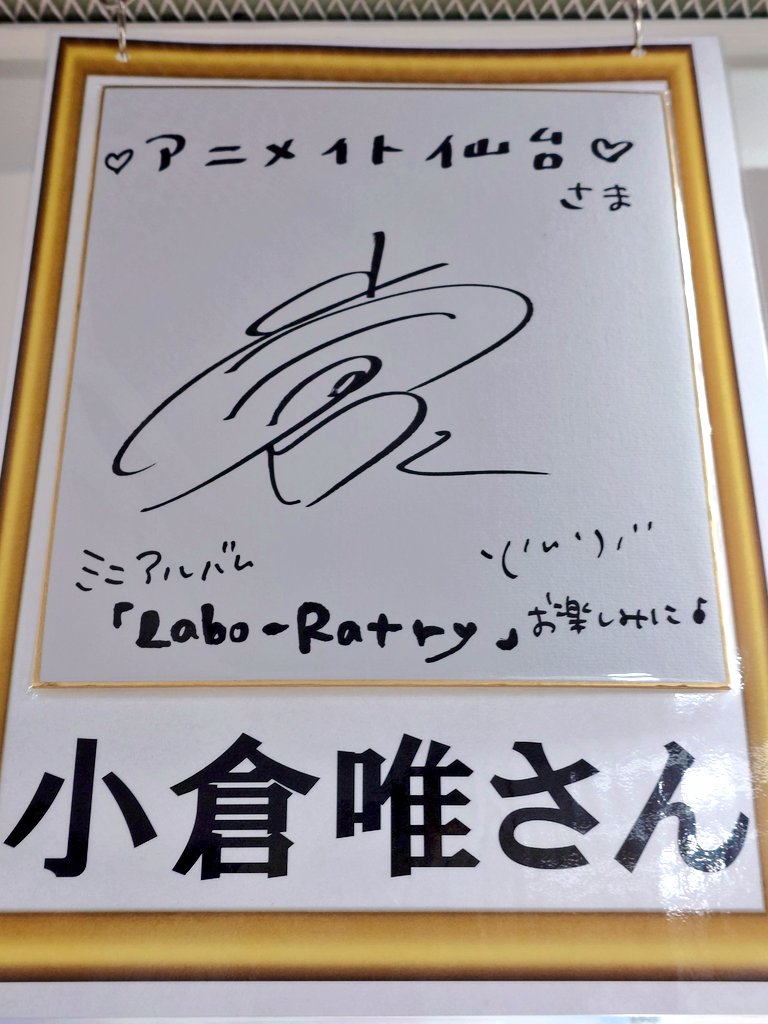 ♡アニメイト仙台♡
さま
ミニアルバム
「Labo-Ratry」お楽しみに♪
小倉唯さん